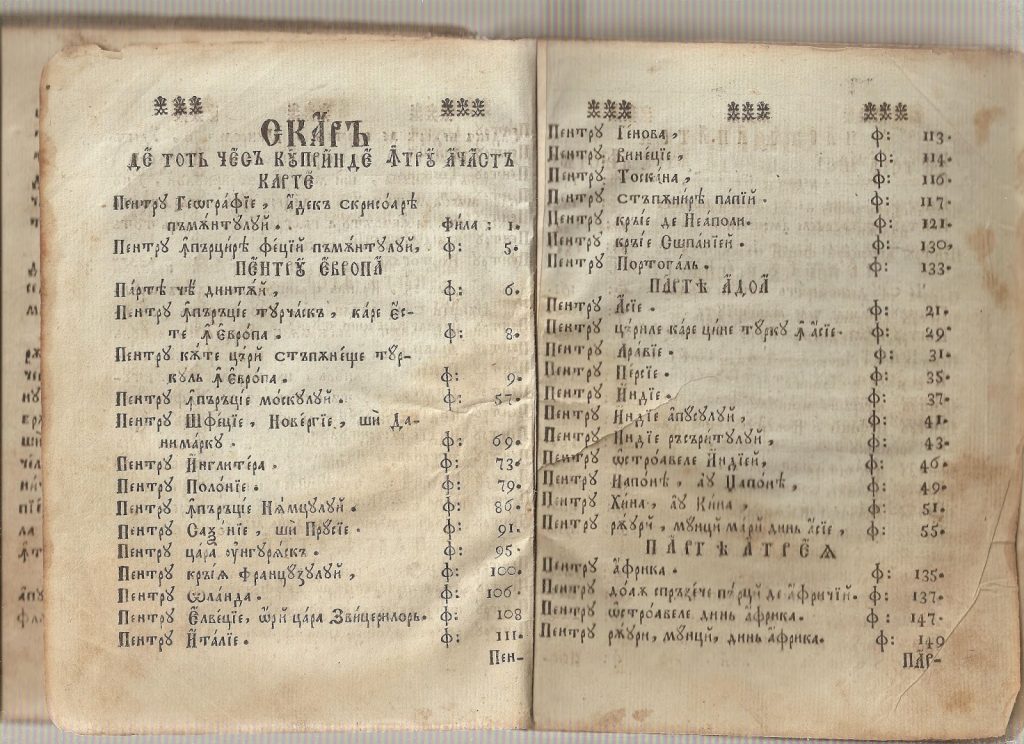 СКАРЪ
ДЕ ТОТЬ ЧЕСЪ КꙊПРИНДЕ ꙞТРꙊ АЧАСТЪ
КАРТЕ
Пентрꙋ Геѡграфїе, адекъ скрисоаре
пъмѫнтꙋлꙋй. фила: 1.
Пентрꙋ ꙟпърцире фецїй пъмѫнтꙋлꙋй, ф: 5.
ПЕНТРꙊ ЕВРОПА
Парте чѣ динтѫй, ф: 6.
Пентрꙋ ꙟпъръціе тꙋрчаскъ, каре ес-
те ꙟ Еѵропа. ф: 8.
Пентрꙋ кѫте църй стъпѫнеще тꙋр-
кꙋль ꙟ Еѵропа. ф: 9.
Пентрꙋ ꙟпъръціе москꙋлꙋй. ф: 57.
Пентрꙋ Шфеціе, Новегіе, ши Да-
нимаркꙋ. ф: 69.
Пентрꙋ Инглитера. ф: 73.
Пентрꙋ Полоніе. ф: 79.
Пентрꙋ ꙟпъръціе Нѣмцꙋлꙋй. ф: 86.
Пентрꙋ Саѯоніе, ши Прꙋсіе. ф: 91.
Пентрꙋ цара ꙋнгꙋрѣскъ. ф: 95.
Пентрꙋ кръіѧ францꙋзꙋлꙋй, ф: 100.
Пентрꙋ ѡланда. ф: 106.
Пентрꙋ Елвеціе, ѡрй цара Звицерилорь. ф: 108
Пентрꙋ Италіе. ф: 111.
Пен-
Пентрꙋ Генова, ф: 113.
Пентрꙋ Винеціе, ф: 114.
Пентрꙋ Тоскана, ф: 116.
Пентрꙋ стъпѫнирѣ папій. ф: 117.
Пентрꙋ кръіе де Неаполи. ф: 121.
Пентрꙋ кръіе Сшпаніей. ф: 130,
Пентрꙋ Портогаль. ф: 133.
ПАРТѢ АДОА
Пентрꙋ Асіе. ф: 21.
Пентрꙋ църиле каре цине тꙋркꙋ ꙟ асіе. ф: 29
Пентрꙋ Аравіе. ф: 31.
Пентрꙋ Персіе. ф: 35.
Пентрꙋ Индіе. ф: 37.
Пентрꙋ Индіе апꙋсꙋлꙋй, ф: 41.
Пентрꙋ Индіе ръсъритꙋлꙋй, ф: 43.
Пентрꙋ ѡстроавеле Индіей, ф: 46.
Пентрꙋ Иапонѣ, аꙋ Џапонѣ, ф: 49.
Пентрꙋ Хина, аꙋ Кина, ф: 51.
Пентрꙋ рѫꙋрй, мꙋнцй марй динь асіе, ф: 55.
ПАРТѢ АТРЕѦ
Пентрꙋ африка. ф: 135.
Пентрꙋ доаѧ спръзече пърцй де афричій. ф: 137.
Пентрꙋ ѡстроавеле динь африка. ф: 147.
Пентрꙋ рѫꙋри, мꙋнцй, динь африка. ф: 149
ПАР-